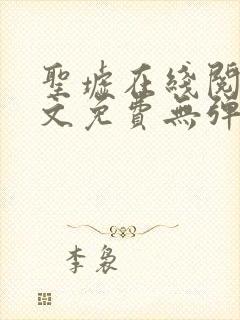 聖墟在綫閱
文免費無彈
李裊